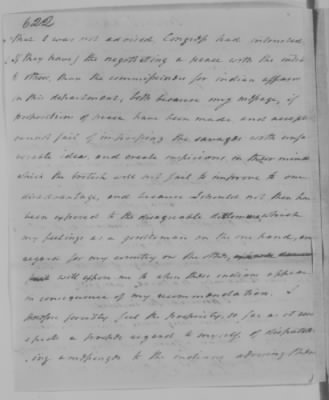 622
that I was not advised Congress had intrusted
if they have) the negotiating a peace with the indi
to other, than the commissioners for indian affairs
in this department, both because my message, if
propositions of peace have been made and accept
cannot fail of inspiring the savages with unfa
vorable ideas, and create suspicions in their mind
which the british will not fail to improve to our
disadvantage, and because I should not then have
been exposed to the disagreable dilemma, which
my feelings as a gentleman on the one hand, an
regard for my country on the other,
will expose me to when these indians appear
in consequence of my recommendation. I
therefore forcibly feel the propriety, so far as it res
pects a proper regard to myself, of dispatch
ing a messenger to the indians advising them